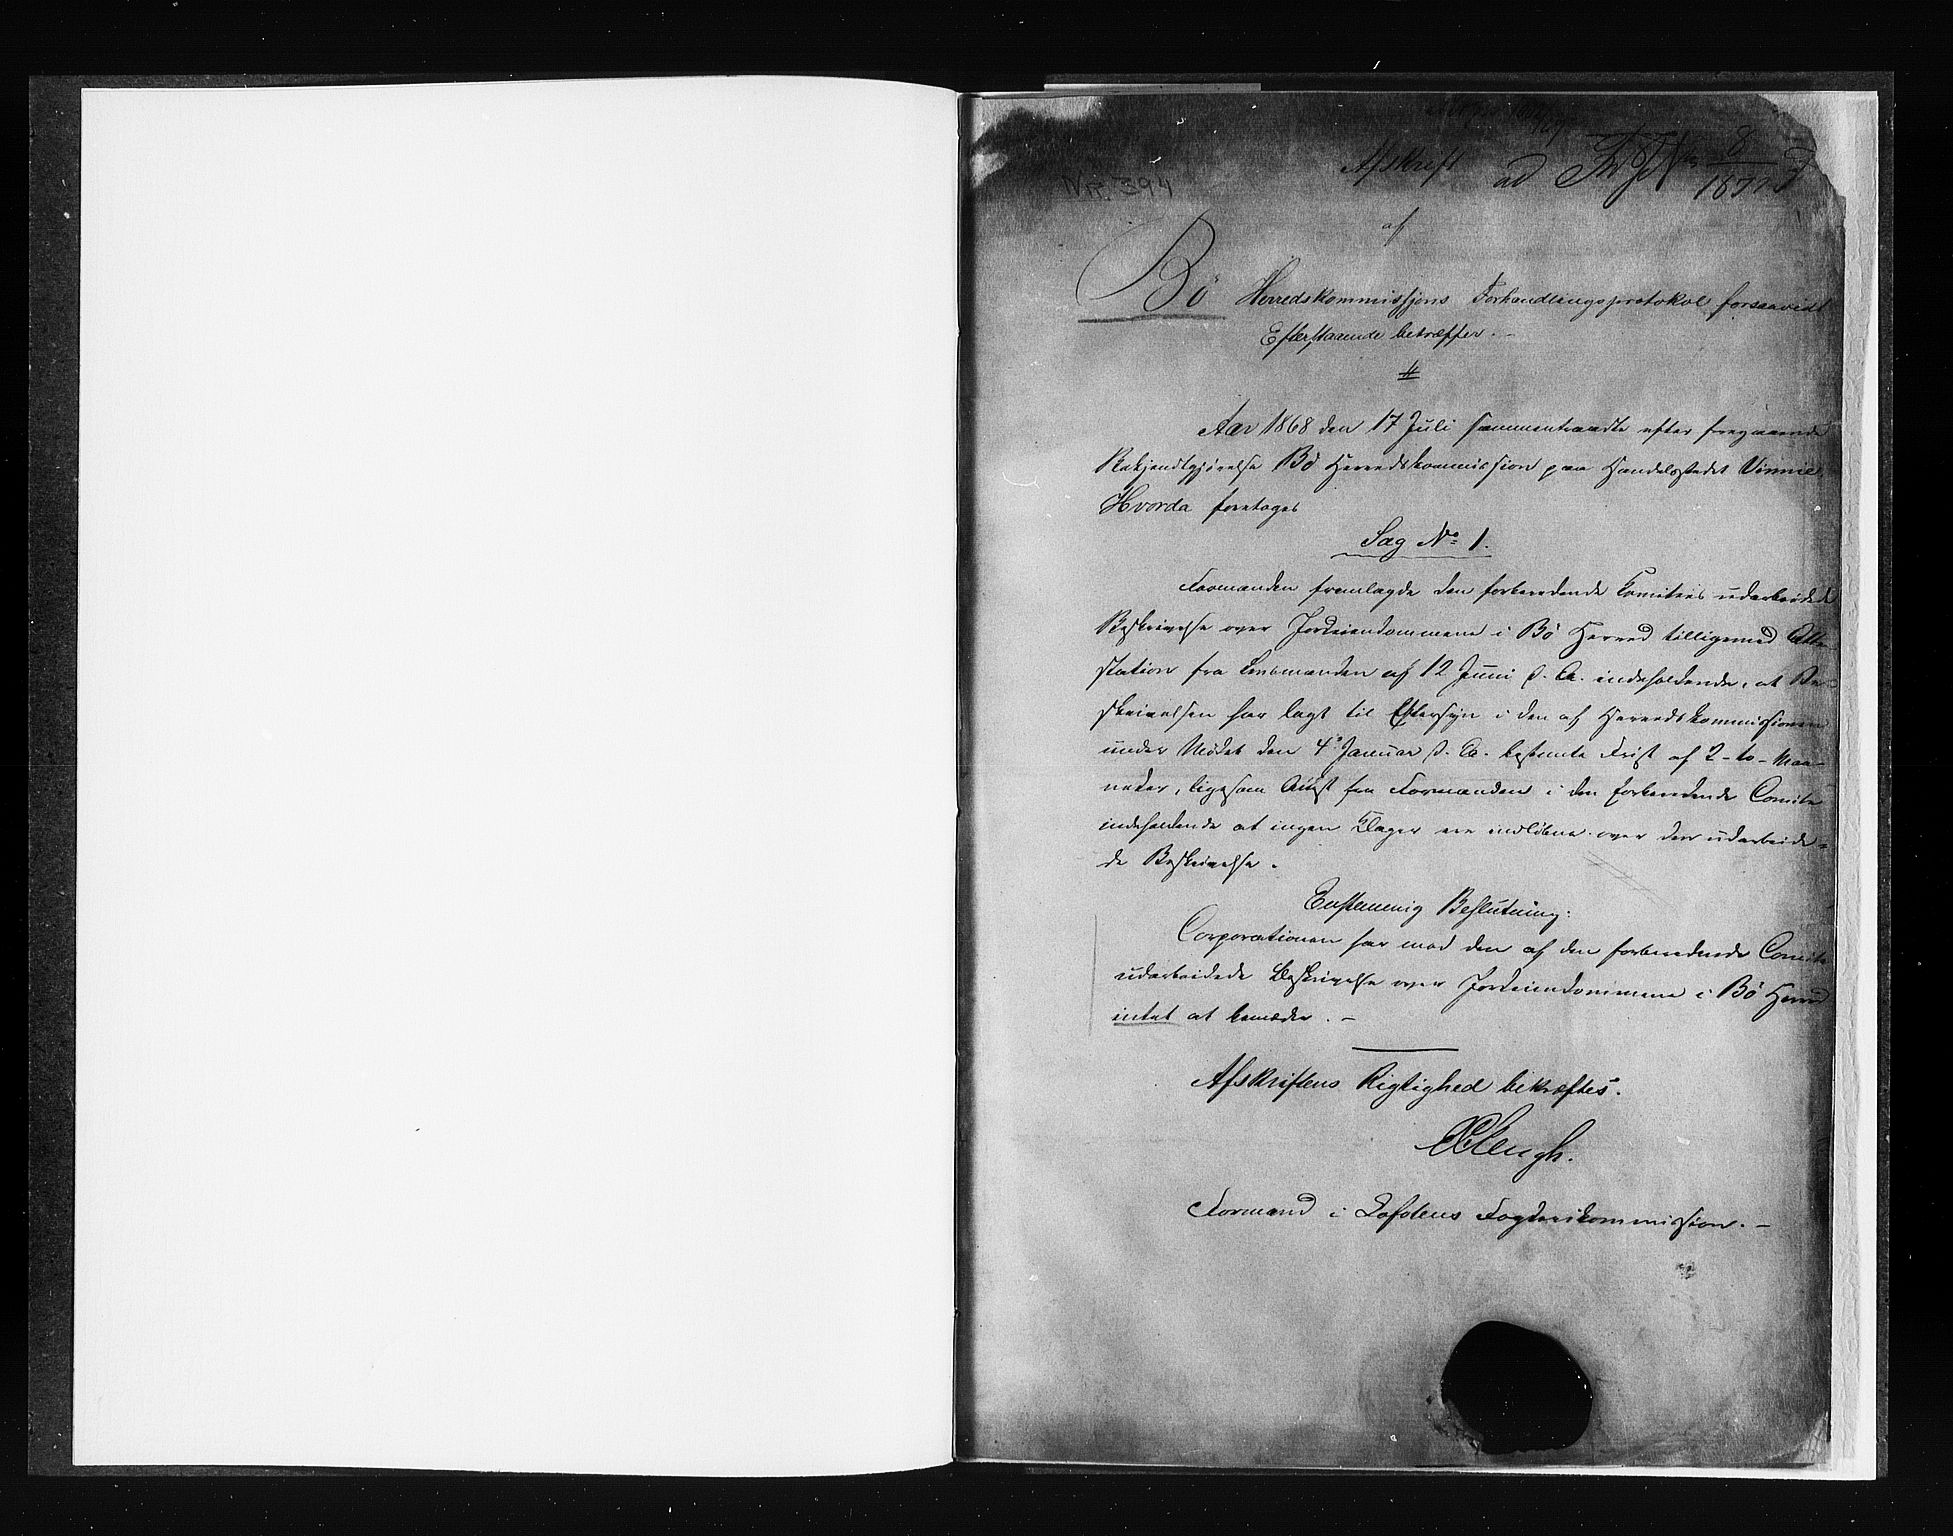 Nr. 394
Afskrift
ad
8
af
Bö Herredskommissjons Forhandlingsprotokol forsaavidt
Efterstaaende betræffer. —
Aar 1868 den 17 Juli sammentraadte efter foregaaende
Bekjendtgjørelse Bö Herredskommission paa Handelsstedet Vinnie
Hvorda foretoges
Sag No 1.
Formanden fremlagde den forberedende Komitees udarbeidede
Beskrivelse over Jordeiendommene i Bö Herred tilligemed Atte-
station fra Lensmanden af 12 Juni d. A. indeholdende, at Be-
skrivelsen har lagt til Eftersyn i den af Herredskommissionen
under Mödet den 4de Januar d. A. bestemte Frist af 2 - to - Maa-
neder, ligesom Attest fra Formanden i den forberedende Comite
indeholdende at ingen Klager ere indløbne over den udarbeide-
de Beskrivelse.
Enstemmig Beslutning:
Corporationen har mod den af den forberedende Comite
udarbeidede Beskrivelse over Jordeiendommene i Bö Herred
intet at bemærke. —
Afskriftens Rigtighed bekræftes.
Formand i Lofotens Fogderikommission. —